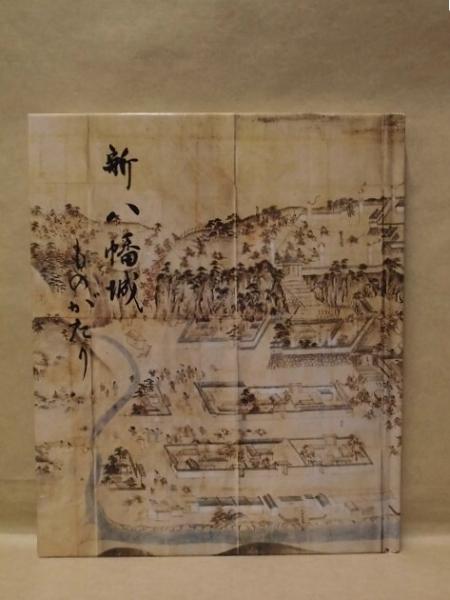 新八幡城
ものがたり